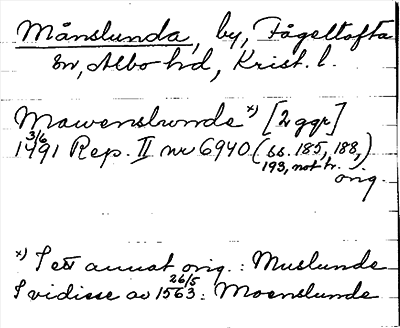 Månslunda, by, Fågeltofta
sn, Albo hd, Krist. l.
Mawenslunde x) [2 ggr]
3/6
1491 Rep. II nr 6940 (ss. 185, 188,
193, not tr.)
orig.
x) I ett annat orig.: Muslunde
I vidisse av 26/5 1563: Moenslunde